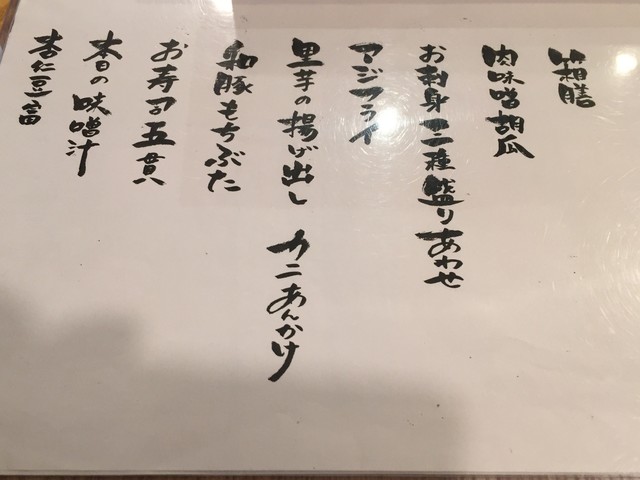 箱膳
肉味噌胡瓜
お刺身三種盛りあわせ
アジフライ
里芋の揚げ出し カニあんかけ
和豚もちぶた
お寿司五貫
本日の味噌汁
杏仁豆富